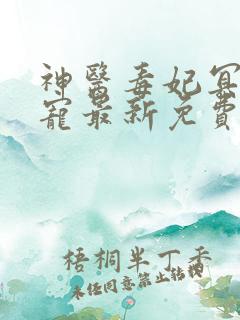 神醫毒妃冥
寵最新免費
梧桐半丁香
未任同意禁止转载